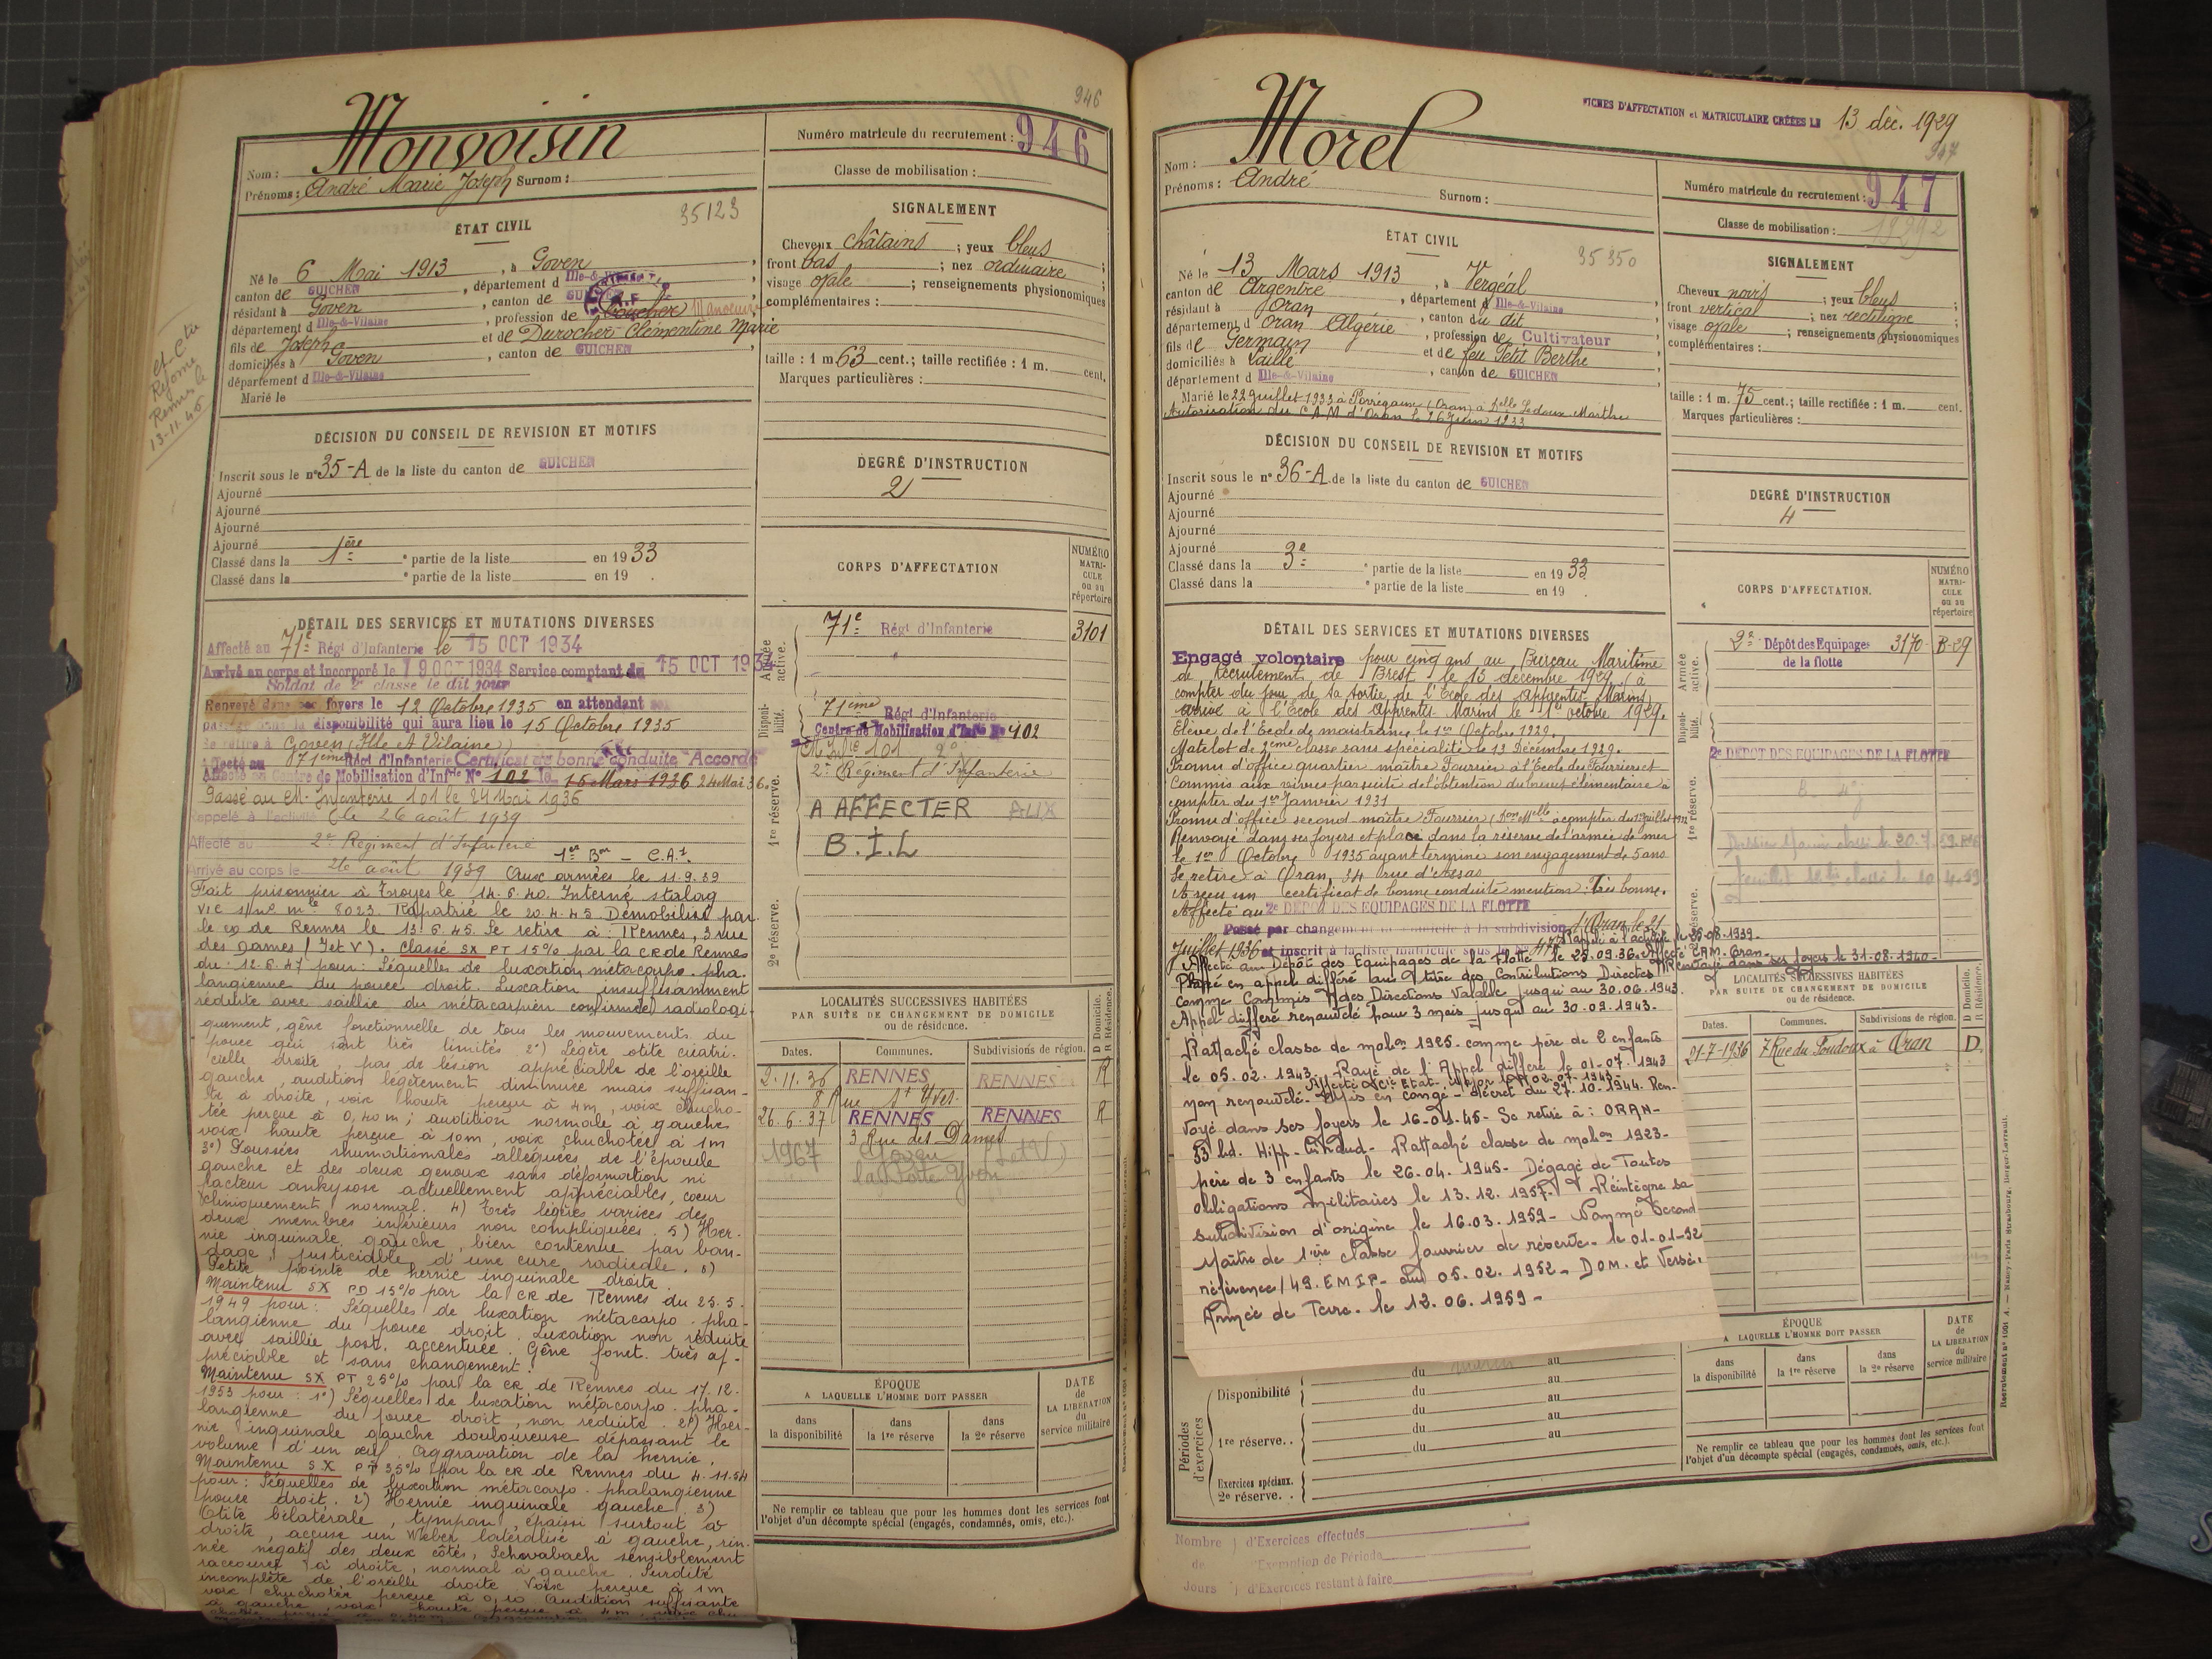 946
Nom : Monvoisin
Prénoms : André Marie Joseph Surnom :
Numéro matricule du recrutement : 946
Classe de mobilisation :
ÉTAT CIVIL
35123
Né le 6 Mai 1913, à Goven
canton de GUICHEN, département d Ille-&-Vilaine
résidant à Goven, canton de GUICHEN
département d Ille-&-Vilaine, profession de
fils de Joseph et de Durocher Clémentine Marie
domiciliés à Goven, canton de GUICHEN
département d Ille-&-Vilaine
Marié le
SIGNALEMENT
Cheveux châtains ; yeux bleus
front bas ; nez ordinaire
visage ovale ; renseignements physionomiques
complémentaires :
taille : 1 m 63 cent.; taille rectifiée : 1 m. cent.
Marques particulières :
Réforme
Rennes le
13-11-45
DÉCISION DU CONSEIL DE REVISION ET MOTIFS
Inscrit sous le n° 35-A de la liste du canton de GUICHEN
Ajourné
Ajourné
Ajourné
Ajourné
Classé dans la 1ère partie de la liste en 1933
Classé dans la e partie de la liste en 19 .
DEGRÉ D'INSTRUCTION
2
DÉTAIL DES SERVICES ET MUTATIONS DIVERSES
Affecté au 71e Régt d'Infanterie le 15 OCT 1934
Arrivé au corps et incorporé le 19 OCT 1934 Service comptant du 15 OCT 1934
Soldat de 2e classe le dit jour
Renvoyé dans ses foyers le 12 Octobre 1935 en attendant son
passage dans la disponibilité qui aura lieu le 15 Octobre 1935
Se retire à Goven (Ille et Vilaine)
Certificat de bonne conduite "Accordé"
Affecté au Centre de Mobilisation d'Infie N° 102 le 15 Mars 1936 24 Mai 36.
Passé au CM. Infanterie 101 le 24 Mai 1936
Rappelé à l'activité le 26 août 1939
Affecté au 2e Régiment d'Infanterie
1er Bon - C.A.1.
Arrivé au corps le 26 août 1939 Aux armées le 11.9.39
Fait prisonnier à Troyes le 14.6.40. Interné stalag
VI C s/ne mle 8023. Rapatrié le 20.4.45 Démobilisé par
le cm de Rennes le 13.6.45. Se retire à : Rennes, 3 rue
des Dames (I et V). Classé SX PT 15% par la CR de Rennes
du 12.6.47 pour : Séquelles de luxation métacarpo-pha-
langienne du pouce droit. Luxation insuffisamment
réduite avec saillie du métacarpien confirmée radiologi-
quement, gêne fonctionnelle de tous les mouvements du
pouce qui sont très limités 2°) Légère otite cicatri-
cielle droite, pas de lésion appréciable de l'oreille
gauche, audition légèrement diminuée mais suffisan-
te à droite, voix haute perçue à 4m, voix chucho-
tée perçue à 0,40m ; audition normale à gauche
voix haute perçue à 10m, voix chuchotée à 1m
3°) Poussées rhumatismales alléguées de l'épaule
gauche et des deux genoux sans déformation ni
facteur ankylose actuellement appréciables, coeur
cliniquement normal. 4) Très légères varices des
deux membres inférieurs non compliquées. 5) Her-
nie inguinale gauche bien contenue par ban-
dage, justiciable d'une cure radicale. 6)
Petite pointe de hernie inguinale droite.
Maintenu SX PD 15% par la CR de Rennes du 25.5.
1949 pour : Séquelles de luxation métacarpo-pha-
langienne du pouce droit. Luxation non réduite
avec saillie post. accentuée. Gêne fonct. très ap-
préciable et sans changement.
Maintenu SX PT 25% par la CR de Rennes du 17.12.
1953 pour : 1°) Séquelles de luxation métacarpo-pha-
langienne du pouce droit, non réduite. 2°) Her-
nie inguinale gauche douloureuse dépassant le
volume d'un oeuf. Aggravation de la hernie.
Maintenu SX PT 35% par la CR de Rennes du 4.11.54
pour : Séquelles de luxation métacarpo-phalangienne
pouce droit. 2) Hernie inguinale gauche 3)
Otite bilatérale, tympan épaissi surtout à
droite, accuse un Weber latéralisé à gauche, rin-
née négatif des deux côtés, Schwabach sensiblement
raccourci à droite, normal à gauche. Surdité
incomplète de l'oreille droite voix perçue à 1m
voix chuchotée perçue à 0,10 Audition suffisante
à gauche, voix haute perçue à 4m, voix chu-
CORPS D'AFFECTATION
NUMÉRO MATRICULE ou au répertoire
Armée active.
71e Régt d'Infanterie 3101
Disponibilité.
71ème Régt d'Infanterie
Centre de Mobilisation d'Infie N° 102
1re réserve.
2e Régiment d'Infanterie
A AFFECTER
B.I.L
2e réserve.
LOCALITÉS SUCCESSIVES HABITÉES
PAR SUITE DE CHANGEMENT DE DOMICILE
ou de résidence.
D Domicile. R Résidence.
Dates. Communes. Subdivisions de région.
2.11.36 RENNES RENNES R
8 Rue St Yves.
26.6.37 RENNES RENNES R
3 Rue des Dames
1967 Goven (I et V)
ÉPOQUE
A LAQUELLE L'HOMME DOIT PASSER
dans la disponibilité
dans la 1re réserve
dans la 2e réserve
DATE de LA LIBÉRATION du service militaire
Ne remplir ce tableau que pour les hommes dont les services font
l'objet d'un décompte spécial (engagés, condamnés, omis, etc.).
FICHES D'AFFECTATION et MATRICULAIRE CRÉÉES LE 13 déc. 1929
947
Nom : Morel
Prénoms : André Surnom :
Numéro matricule du recrutement : 947
Classe de mobilisation :
ÉTAT CIVIL
35350
Né le 13 Mars 1913, à Vergéal
canton de Argentré, département d Ille-&-Vilaine
résidant à Oran, canton du dit
département d'Oran Algérie, profession de Cultivateur
fils de Germain et de feu Petit Berthe
domiciliés à Vaillé, canton de GUICHEN
département d Ille-&-Vilaine
Marié le 22 Juillet 1933 à Perrégaux (Oran) à Delle Ledoux Marthe
Autorisation du C.A.M d'Oran le 26 Juin 1933
SIGNALEMENT
Cheveux noirs ; yeux bleus
front vertical ; nez rectiligne
visage ovale ; renseignements physionomiques
complémentaires :
taille : 1 m. 75 cent.; taille rectifiée : 1 m. cent.
Marques particulières :
DÉCISION DU CONSEIL DE REVISION ET MOTIFS
Inscrit sous le n° 36-A de la liste du canton de GUICHEN
Ajourné
Ajourné
Ajourné
Ajourné
Classé dans la 3e partie de la liste en 1933
Classé dans la e partie de la liste en 19 .
DEGRÉ D'INSTRUCTION
4
DÉTAIL DES SERVICES ET MUTATIONS DIVERSES
Engagé volontaire pour cinq ans au Bureau Maritime
de Recrutement de Brest le 13 décembre 1929 (à
compter du jour de sa sortie de l'École des Apprentis-Marins)
Arrivé à l'École des Apprentis-Marins le 1er octobre 1929.
Elève de l'Ecole de maistrance le 1er Octobre 1929.
Matelot de 2ème classe sans spécialité le 13 Décembre 1929.
Promu d'office quartier maître Fourrier à l'Ecole des Fourriers et
Commis aux vivres par suite de l'obtention du brevet élémentaire à
compter du 1er Janvier 1931
Promu d'office second-maître Fourrier à compter du 1er juillet
Renvoyé dans ses foyers et placé dans la réserve de l'armée de mer
le 1er Octobre 1935 ayant terminé son engagement de 5 ans
Se retire à Oran, 34 rue d'Arzew
A reçu un certificat de bonne conduite mention : Très bonne.
Affecté au 2e DEPOT DES EQUIPAGES DE LA FLOTTE
Passé par changement de domicile à la subdivision d'Oran le 21
Juillet 1936 et inscrit à la liste matricule sous le N°
Rappelé à l'activité le 25-08-1939.
Affecté au Dépôt des Equipages de la Flotte le 25.09.36. Affecté CAM. Oran-
Renvoyé dans ses foyers le 31-08-1940-
Placé en appel différé au titre des Contributions Directes
comme Commis des Directions Valable jusqu'au 30.06.1943.
Appel différé renouvelé pour 3 mois jusqu'au 30-09-1943.
Rattaché classe de mobon 1925. comme père de 2 enfants
le 05.02.1943. Rayé de l'Appel différé le 01-07-1943
non renouvelé. Mis en congé - décret du 27-10-1944. Ren-
voyé dans ses foyers le 16-01-45- Se retire à : ORAN-
53 bd. Hipp. Giraud- Rattaché classe de mobon 1923-
père de 3 enfants le 26-04-1945- Dégagé de Toutes
obligations militaires le 13.12.1957- Réintègre sa
subdivision d'origine le 16.03.1959- Nommé Second
Maître de 1ère classe fourrier de réserve- le 01-01-52
référence/49.EMIP- du 05.02.1952- DOM. et Versé.
Armée de Terre. le 12.06.1959-
CORPS D'AFFECTATION.
NUMÉRO MATRICULE ou au répertoire
Armée active.
2e Dépôt des Equipages de la flotte 3170 B-29
Disponibilité.
2e DEPOT DES EQUIPAGES DE LA FLOTTE
1re réserve.
2e réserve.
LOCALITÉS SUCCESSIVES HABITÉES
PAR SUITE DE CHANGEMENT DE DOMICILE
ou de résidence.
D Domicile. R Résidence.
Dates. Communes. Subdivisions de région.
21-7-1936 7 Rue du Soudoux à Oran D.
Périodes d'exercices
Disponibilité
du au
du au
du au
1re réserve. .
du au
du au
Exercices spéciaux.
2e réserve. .
ÉPOQUE
A LAQUELLE L'HOMME DOIT PASSER
dans la disponibilité
dans la 1re réserve
dans la 2e réserve
DATE de LA LIBÉRATION du service militaire
Ne remplir ce tableau que pour les hommes dont les services font
l'objet d'un décompte spécial (engagés, condamnés, omis, etc.).
Nombre d'Exercices effectués
de d'Exemption de Période
Jours d'Exercices restant à faire
Recrutement n° 1001 A. — Nancy-Paris Strasbourg, Berger-Levrault.